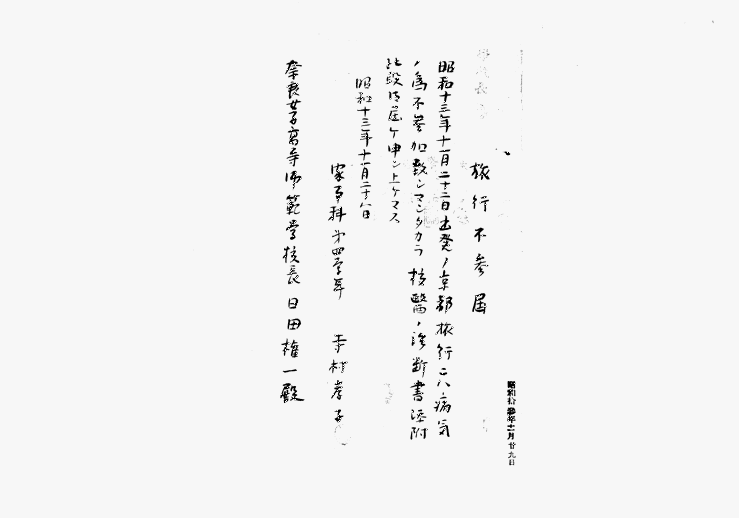 旅行不参届
昭和十三年十一月二十二日出発ノ京都旅行ニハ病気
ノ為不参加致シマシタカラ校醫ノ診断書添附
此段御届ケ申シ上ケマス
昭和十三年十一月二十八日
家事科第四学年
孝子
奈良女子高等師範学校長日田権一殿
昭和拾参年十一月廿九日